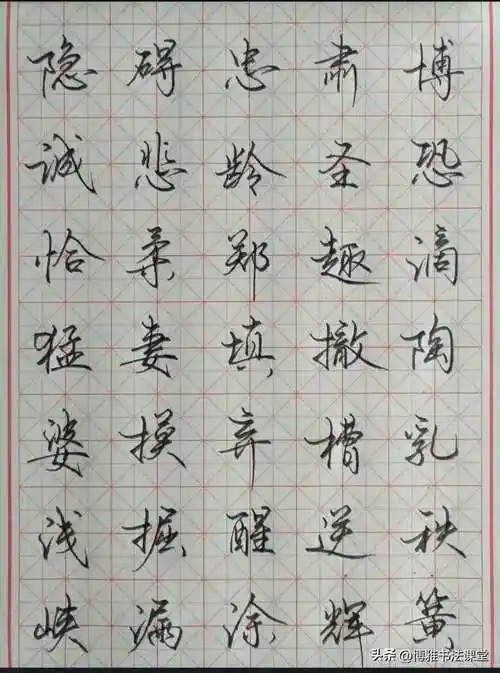 隐碍忠肃博
诚悲龄圣恐
恰柔郑趣滴
猛妻填撤陶
婆摸弃槽乳
浅掘醒逆秩
峡漏涂辉簧
头条 @博雅书法课堂